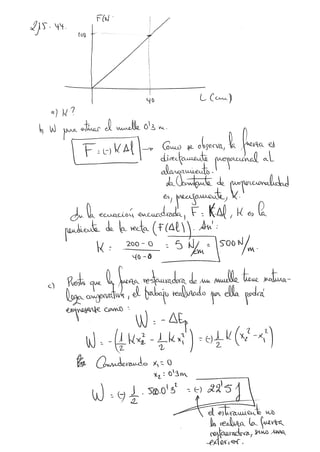 215. 44.
F(N)
200
40
L (cm)
a) K?
b) W para estirar el muelle 0'3 m.
F = (-) KΔl → Como se observa, la fuerza es
directamente proporcional al
alargamiento.
La constante de proporcionalidad
es, precisamente, K.
En la ecuación encuadrada, F = KΔl, K es la
pendiente de la recta (F(Δl)). Así:
K = 200 - 0 / 40 - 0 = 5 N/cm = 500 N/m.
c) Puesto que la fuerza restauradora de un muelle tiene natura-
leza conservativa, el trabajo realizado por ella podrá
expresarse como:
W = - ΔEp
W = - (1/2 Kx₂² - 1/2 Kx₁²) = (-) 1/2 K (x₂² - x₁²)
Considerando x₁ = 0
x₂ = 0'3m
W = (-) 1/2 · 500·0'3² = (-) 22'5 J
el estiramiento no
la realiza la fuerza
restauradora, sino una
exterior.